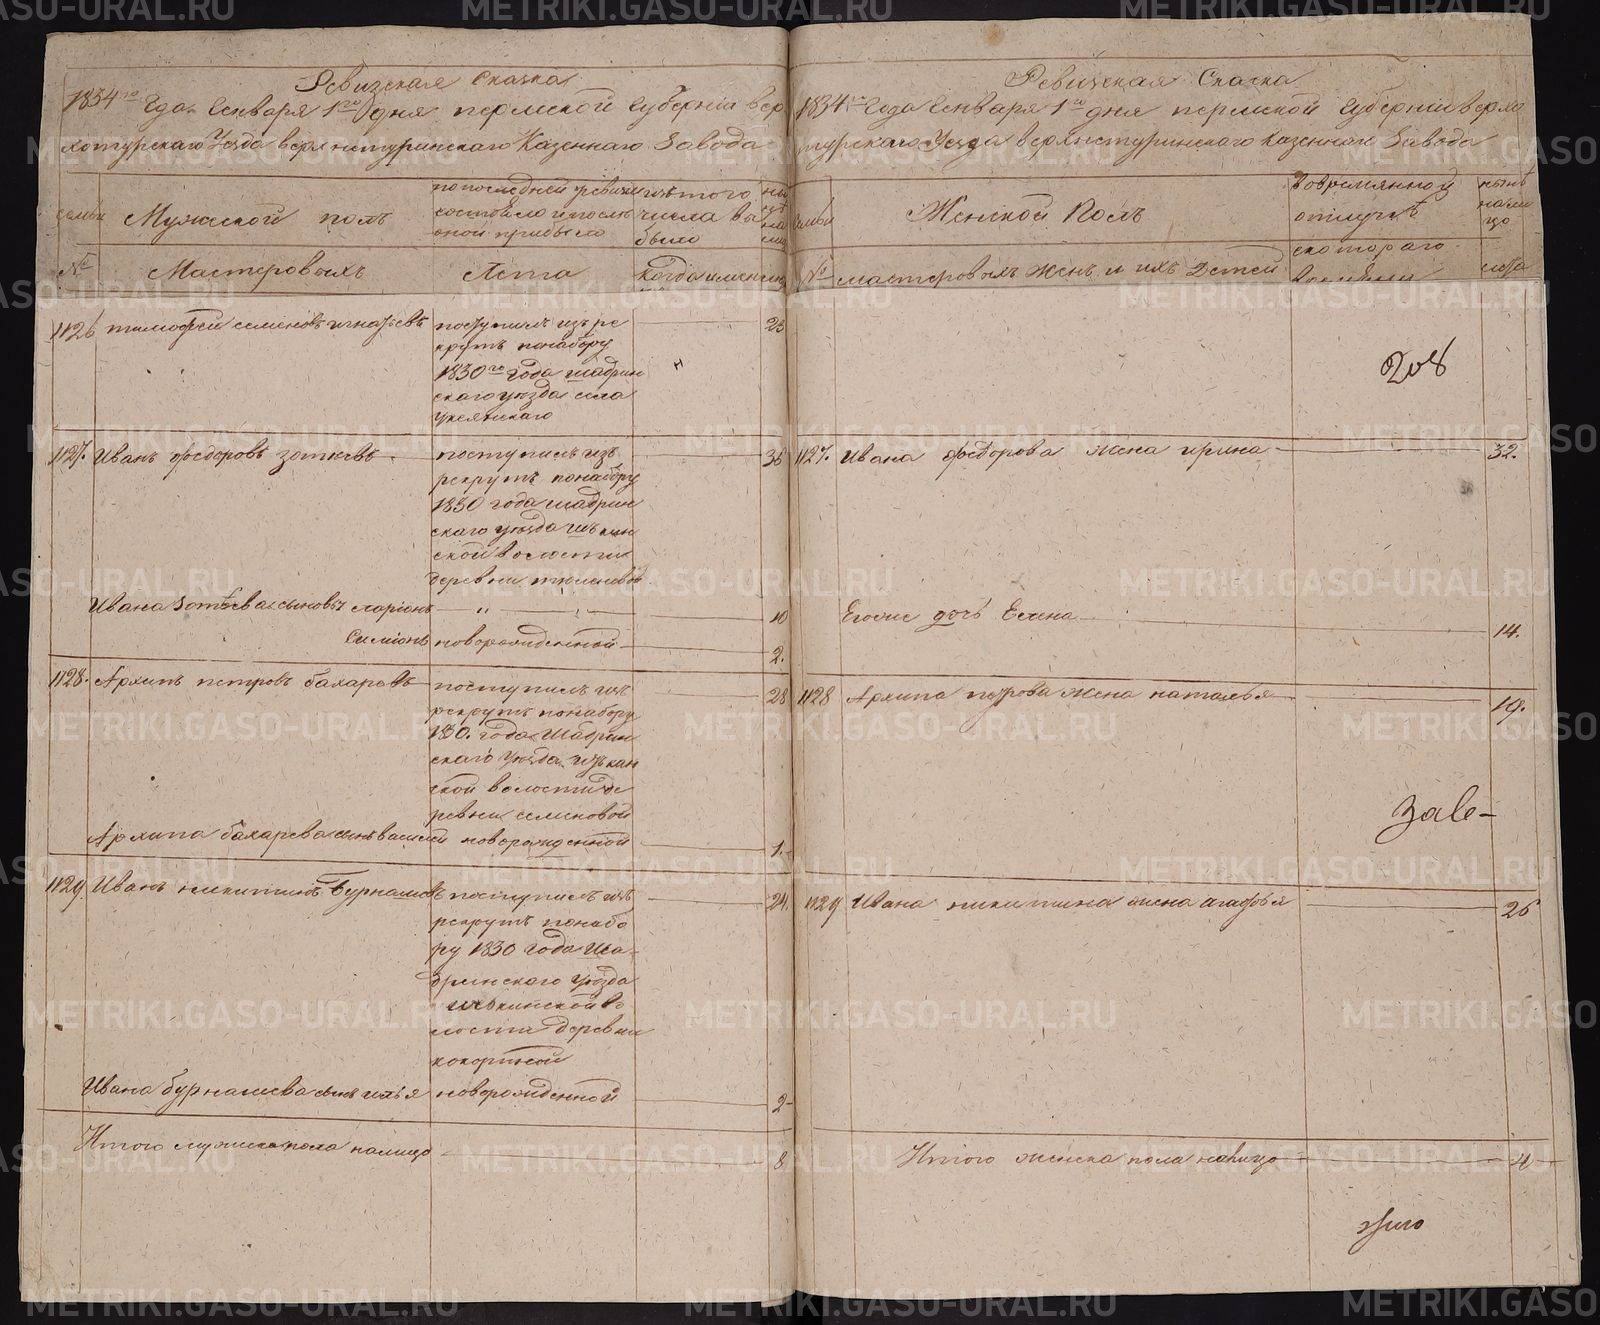 Ревизская Сказка
1834го Года Генваря 1го дня пермской губернии вер
хотурскаго Уезда верхнетуринскаго Казеннаго Завода
семьи
Мужеской полъ
по последней ревизии
состояло и после
оной прибыло
изъ того
числа вы
было
№
Мастеровыхъ
Лета
когда именно
1126 тимофей семеновъ игнатьевъ
поступилъ изъ ре
крутъ по набору
1830го года шадрин
скаго уезда села
уксянскаго
23
1127. Иванъ федоровъ зотеевъ
поступилъ изъ
рекрутъ по набору
1830 года шадрин
скаго уезда
ской волости
деревни
36
Ивана Зотеева сыновья ларіонъ
10
Симіонъ новорожденной
2.
1128. Архипъ петровъ бахаревъ
поступилъ изъ
рекрутъ по набору
1830. года Шадрин
скаго уезда
ской волости де
ревни семеновой
28
Архипа бахарева сынъ василей новорожденной
1.
1129. Иванъ никитинъ Бурнашовъ
поступилъ изъ
рекрутъ по набо
ру 1830 года Ша
дринскаго уезда
во
лости деревни
24.
Ивана бурнашева сынъ илья новорожденной
2
Итого мужеска пола налицо
8
Ревизская Сказка
1834го Года Генваря 1го дня пермской губернии верхо
турскаго Уезда верхнетуринскаго казеннаго Завода
семьи
Женской Полъ
во временной
отлучке
ныне
нали
цо
№
мастеровыхъ Женъ и ихъ Детей
с котораго
времени
лета
208
1127. Ивана федорова жена ирина
32.
Егоже дочь Елена
14.
1128 Архипа петрова жена наталья
19.
1129 Ивана никитина жена агафья
26
Итого женска пола налицо
4
METRIKI.GASO-URAL.RU